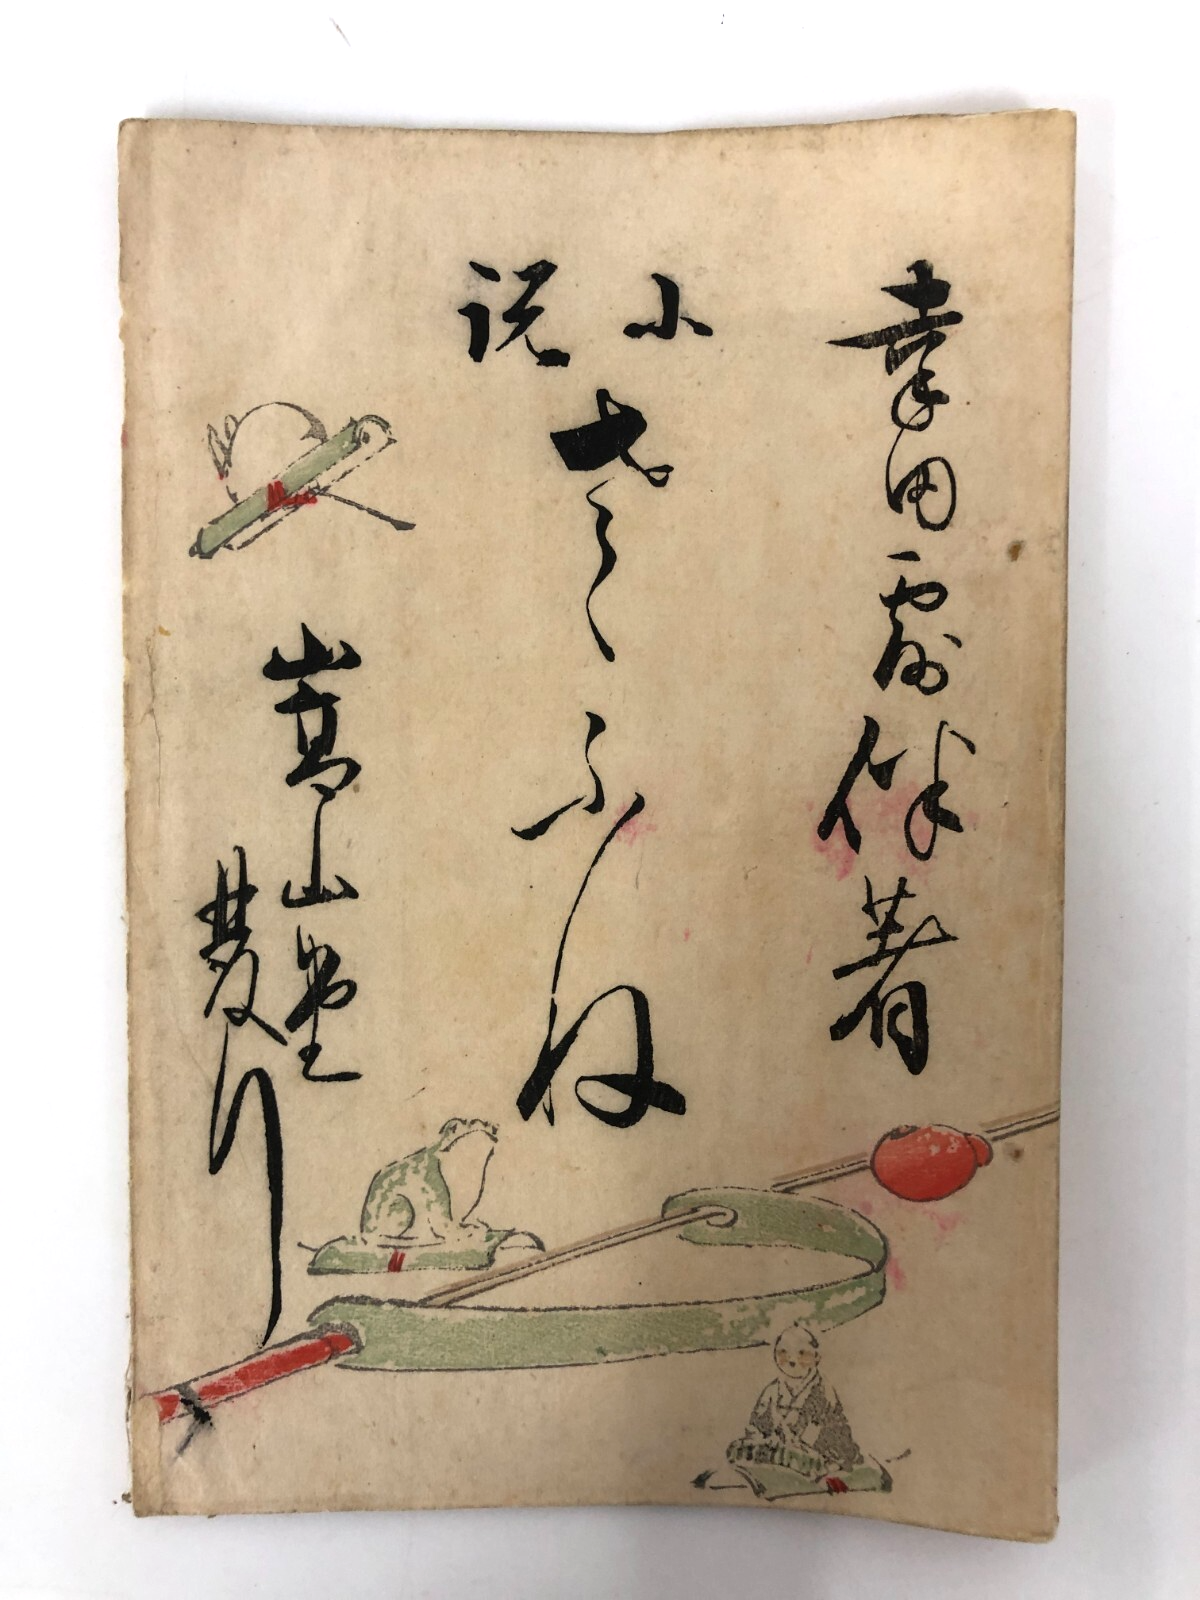 幸田露伴著
小説
さゝふね
嵩山堂
発行